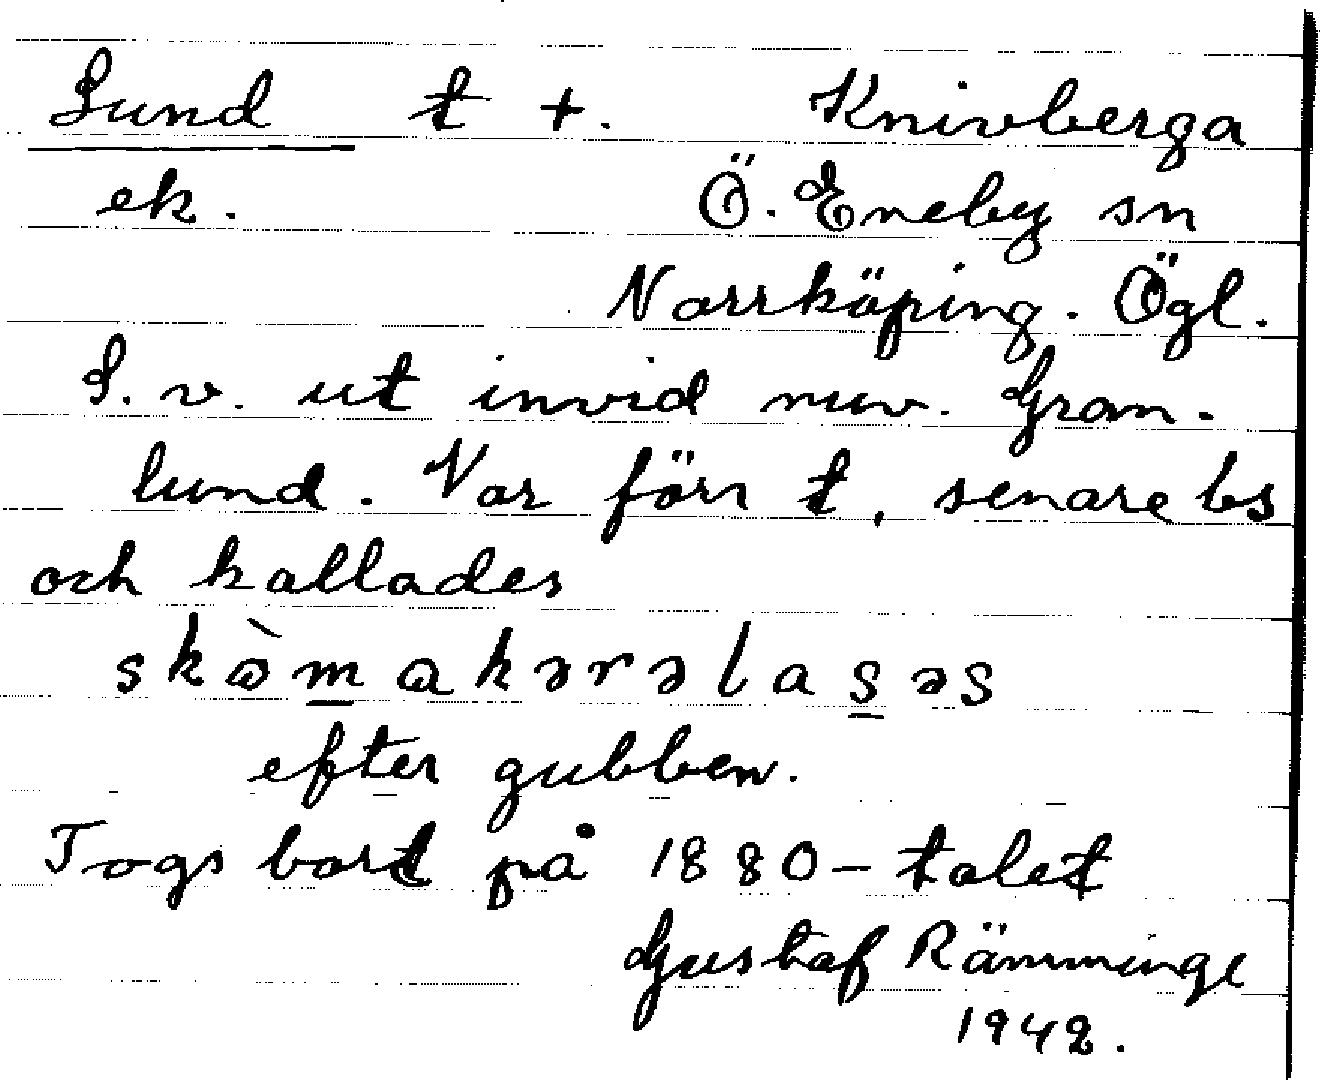 Lund t +. Knivberga
ek. Ö. Eneby sn
Norrköping. Ögl.
S. v. ut invid nuv. Gran-
lund. Var förr t, senare bs
och kallades
skò̱makərəlasəs
efter gubben.
Togs bort på 1880-talet
Gustaf Rämminge
1942.